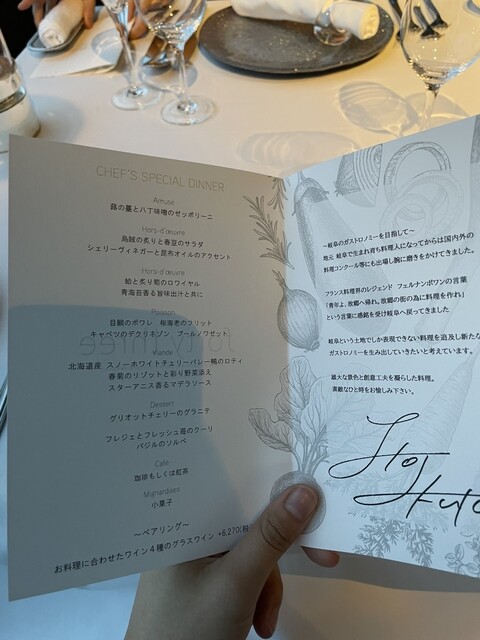 CHEF'S SPECIAL DINNER
Amuse
蕗の薹と八丁味噌のゼッポリーニ
Hors-d'œuvre
烏賊の炙りと春豆のサラダ
シェリーヴィネガーと昆布オイルのアクセント
Hors-d'œuvre
蛤と炙り筍のロワイヤル
青海苔香る旨味出汁と共に
Poisson
目鯛のポワレ 桜海老のフリット
キャベツのデクリネゾン ブールソワゼット
Viande
北海道産 スノーホワイトチェリーバレー鴨のロティ
春菊のリゾットと彩り野菜添え
スターアニス香るマデラソース
Dessert
グリオットチェリーのグラニテ
フレジェとフレッシュ苺のクーリ
バジルのソルベ
Café
珈琲もしくは紅茶
Mignardises
小菓子
～ペアリング～
お料理に合わせたワイン4種のグラスワイン +6,270(税
～岐阜のガストロノミーを目指して～
地元 岐阜で生まれ育ち料理人になってからは国内外の
料理コンクール等にも出場し腕に磨きをかけてきました。
フランス料理界のレジェンド フェルナンポワンの言葉
「青年よ、故郷へ帰れ。故郷の街の為に料理を作れ」
という言葉に感銘を受け岐阜へ戻ってきました
岐阜という土地でしか表現できない料理を追及し新たな
ガストロノミーを生み出していきたいと考えています。
雄大な景色と創意工夫を凝らした料理。
素敵なひと時をお愉しみ下さい。